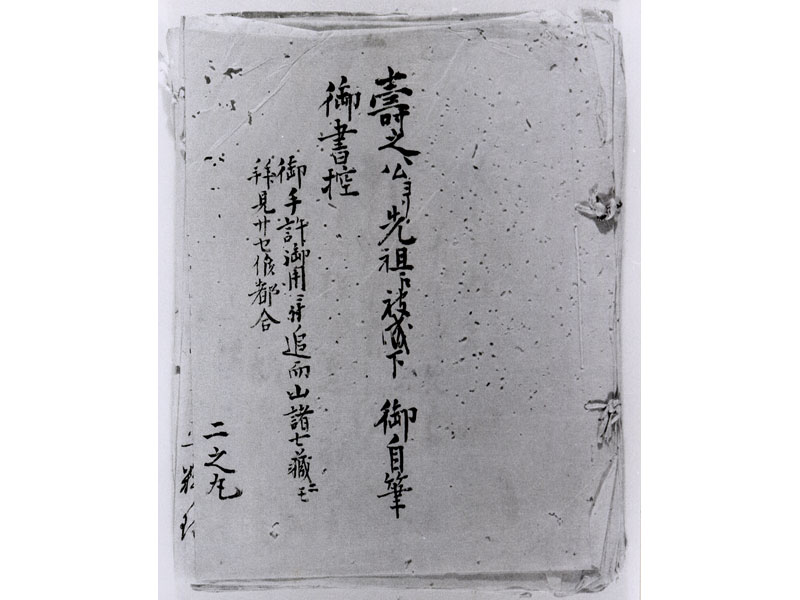 壽之公ヨリ先祖ヘ被成下 御自筆
御書控
御手許御用ニ付追而山諸士蔵ニモ
拝見廿七候都合
二之丸